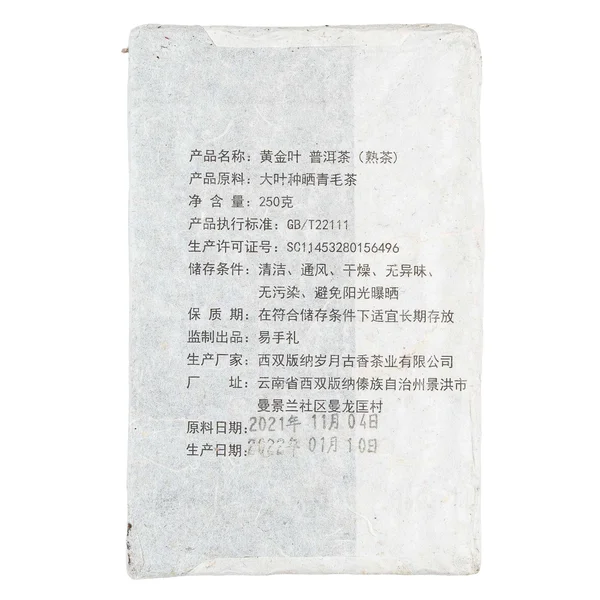 产品名称：黄金叶 普洱茶（熟茶）
产品原料：大叶种晒青毛茶
净 含 量：250克
产品执行标准：GB/T22111
生产许可证号：SC11453280156496
储存条件：清洁、通风、干燥、无异味、
无污染、避免阳光曝晒
保 质 期：在符合储存条件下适宜长期存放
监制出品：易手礼
生产厂家：西双版纳岁月古香茶业有限公司
厂 址：云南省西双版纳傣族自治州景洪市
曼景兰社区曼龙匡村
原料日期:2021年 11月 04日
生产日期:2022年 01月 10日